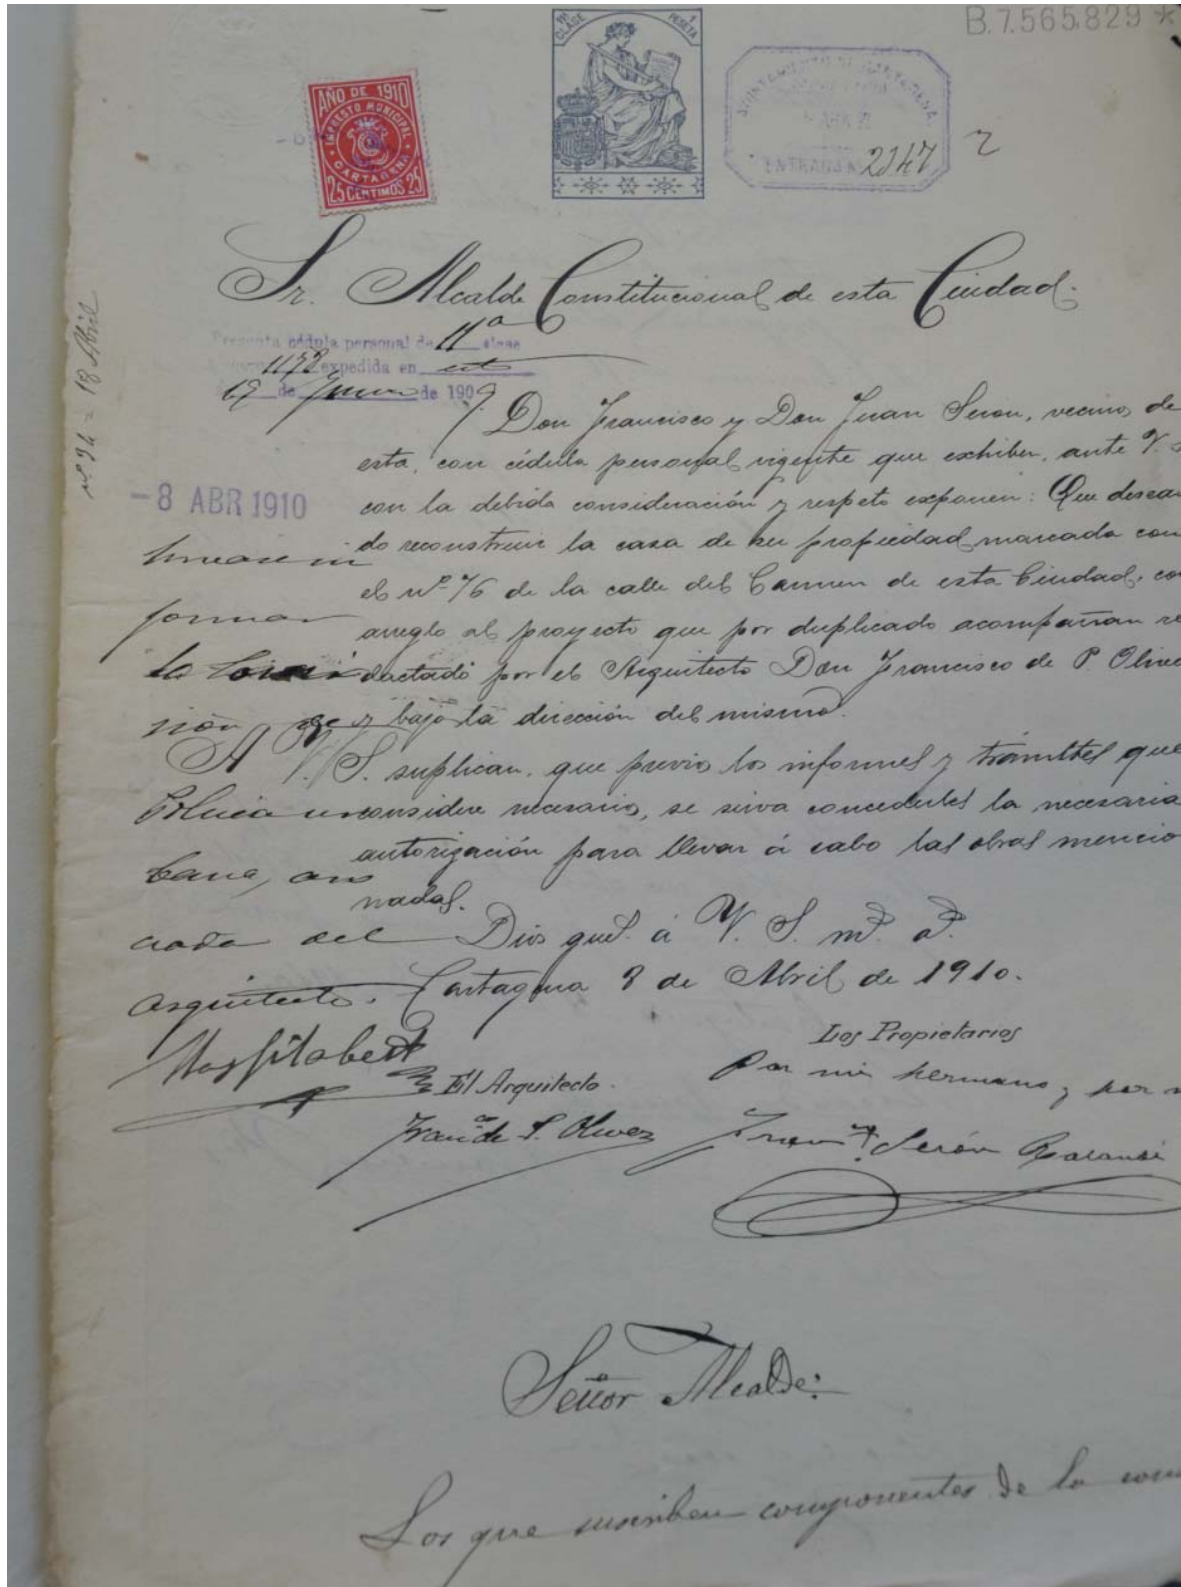 B.7.565.829 *
CLASE 1 PESETA
AÑO DE 1910
IMPUESTO MUNICIPAL
CARTAGENA
25 CENTIMOS 25
ENTRADA 2147
2
Sr. Alcalde Constitucional de esta Ciudad.
cédula personal de 11ª clase
1172 expedida en esta
de de 1909
18 Abril
Don Francisco y Don Juan Seron, vecinos de
esta, con cédula personal vigente que exhiben, ante V.
con la debida consideración y respeto exponen: Que desean
do reconstruir la casa de su propiedad marcada con
el nº 76 de la calle del Carmen de esta Ciudad, con
arreglo al proyecto que por duplicado acompañan re
dactado por el Arquitecto Don Francisco de P. Olive
y bajo la dirección del mismo.
A V. S. suplican, que previo los informes y trámites que
considere necesario, se sirva concederles la necesaria
autorización para llevar á cabo las obras mencio
nadas.
Dios gue. á V. S. ms. as.
Cartagena 8 de Abril de 1910.
-8 ABR 1910
formar
la Comi
sión de
Policia ur
bana, aso
ciada del
arquitecto.
El Arquitecto.
Franco de P. Oliver
Los Propietarios
Por mi hermano y por
Serón
Señor Alcalde:
Los que suscriben componentes de la com